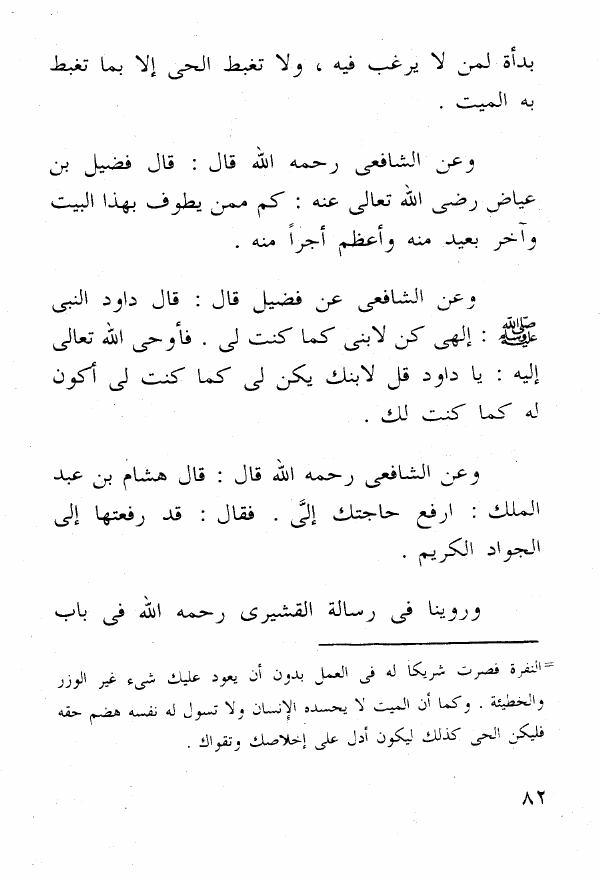 بدأة لمن لا يرغب فيه ، ولا تغبط الحى إلا بما تغبط
به الميت .
وعن الشافعى رحمه الله قال : قال فضيل بن
عياض رضى الله تعالى عنه : كم ممن يطوف بهذا البيت
وآخر بعيد منه وأعظم أجراً منه .
وعن الشافعى عن فضيل قال : قال داود النبى
ﷺ : إلهى كن لابنى كما كنت لى . فأوحى الله تعالى
إليه : يا داود قل لابنك يكن لى كما كنت لى أكون
له كما كنت لك .
وعن الشافعى رحمه الله قال : قال هشام بن عبد
الملك : ارفع حاجتك إلىَّ . فقال : قد رفعتها إلى
الجواد الكريم .
وروينا فى رسالة القشيرى رحمه الله فى باب
= النفرة فصرت شريكا له فى العمل بدون أن يعود عليك شىء غير الوزر
والخطيئة . وكما أن الميت لا يحسده الإنسان ولا تسول له نفسه هضم حقه
فليكن الحى كذلك ليكون أدل على إخلاصك وتقواك .
٨٢